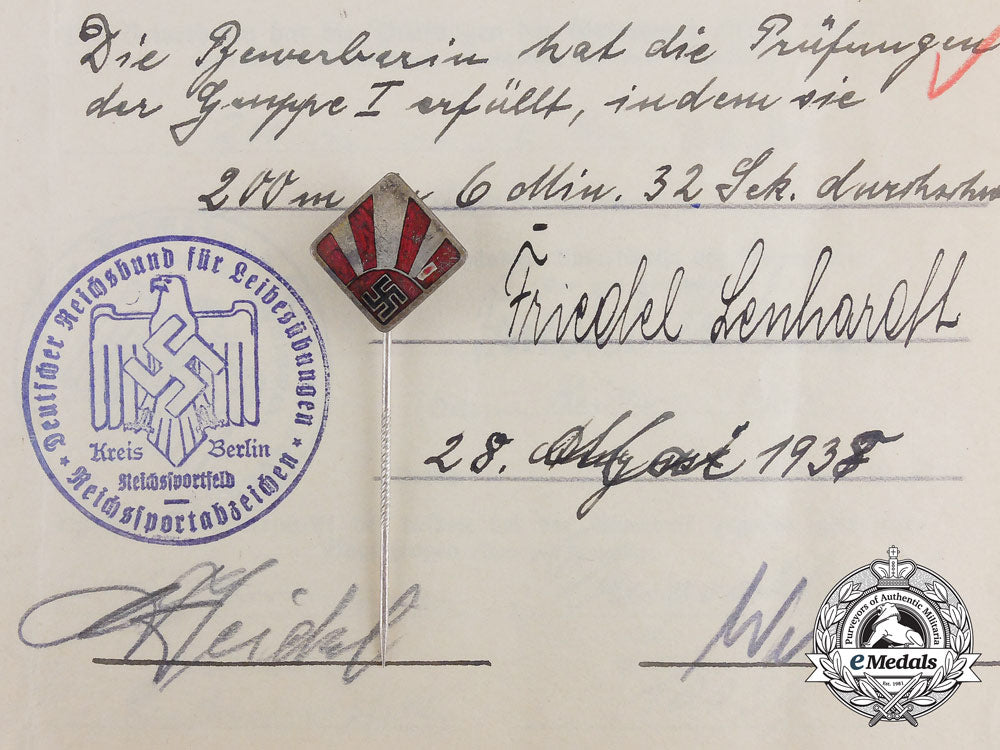 Die Bewerberin hat die Prüfungen
der Gruppe I erfüllt, indem sie
200 m 6 Min. 32 Sek.
Friedel Lenhardt
28. 1938
Deutscher Reichsbund für Leibesübungen
Kreis Berlin
Reichssportfeld
Reichssportabzeichen
Purveyors of Authentic Militaria
eMedals
Est. 1981